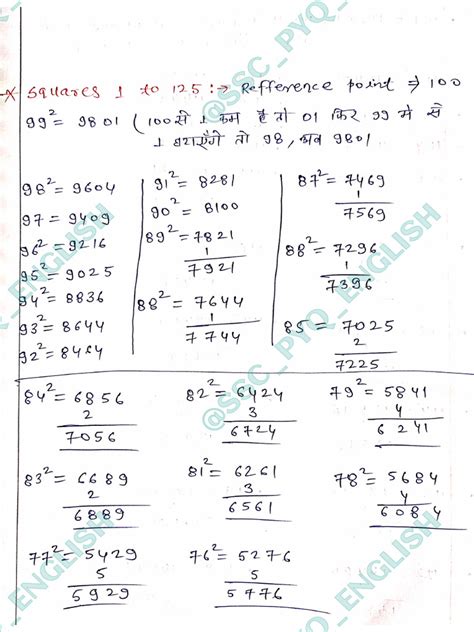 @SSC_PYQ_ENGLISH
* Squares 1 to 125 :→ Refference point ⇒ 100
99² = 9801 (100 से 1 कम है तो 01 फिर 99 मे से
1 घटाएँगे तो 98, अब 9801
98² = 9604
97 = 9409
96² = 9216
95² = 9025
94² = 8836
93² = 8644
92² = 8464
91² = 8281
90² = 8100
89² = 7821
1
7921
88² = 7644
1
7744
87² = 7469
1
7569
88² = 7296
1
7396
85 = 7025
2
7225
84² = 6856
2
7056
82² = 6424
3
6724
79² = 5841
4
6241
83² = 6689
2
6889
81² = 6261
3
6561
78² = 5684
4
6084
77² = 5429
5
5929
76² = 5276
5
5776
@SSC_PYQ_ENGLISH